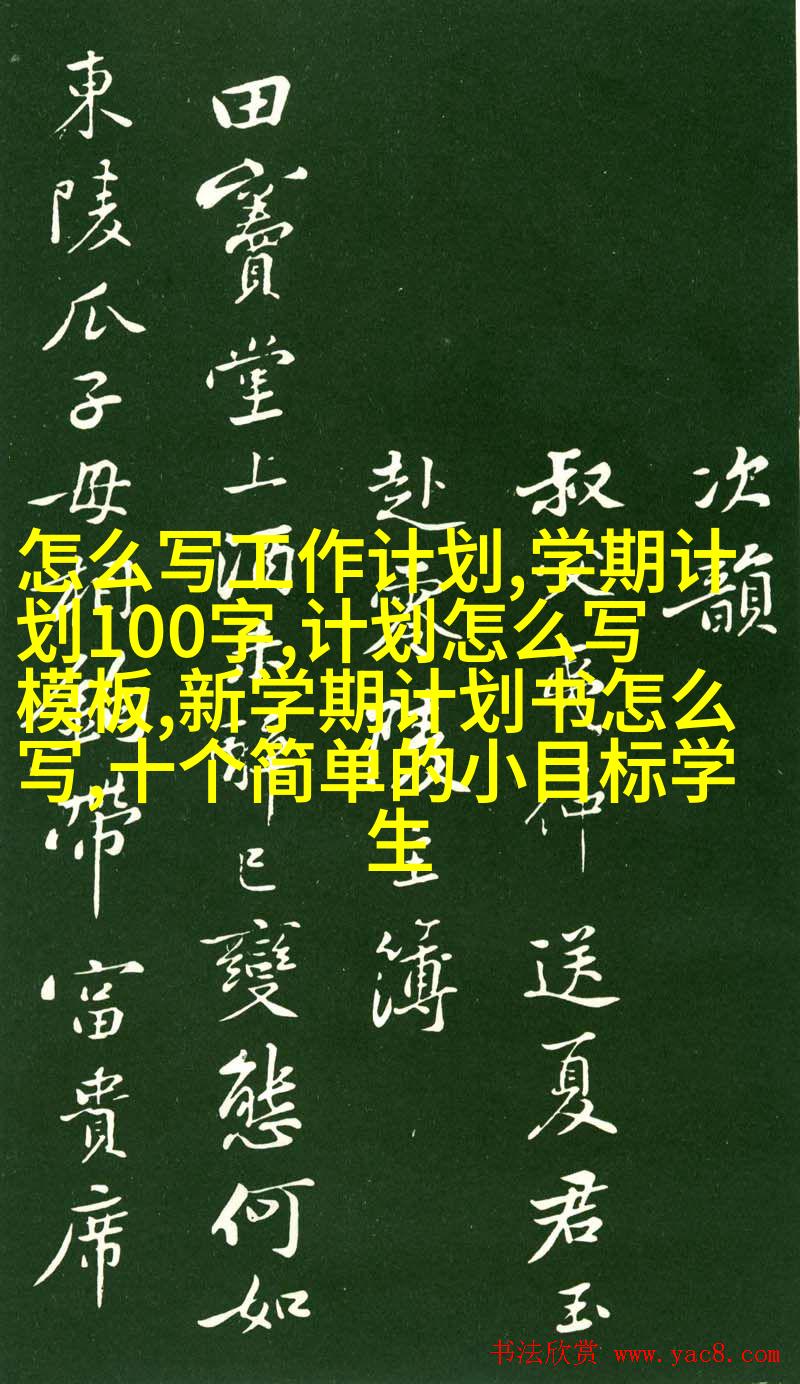 怎么写工作计划,学期计
划100字,计划怎么写
模板,新学期计划书怎么
写,十个简单的小目标学
生
次韻
叔父夷仲送夏君玉
赴零陵主簿
田竇堂上酒未解已變態何如
東陵瓜子母相鉤帶富貴席
书法欣赏 www.yac8.com